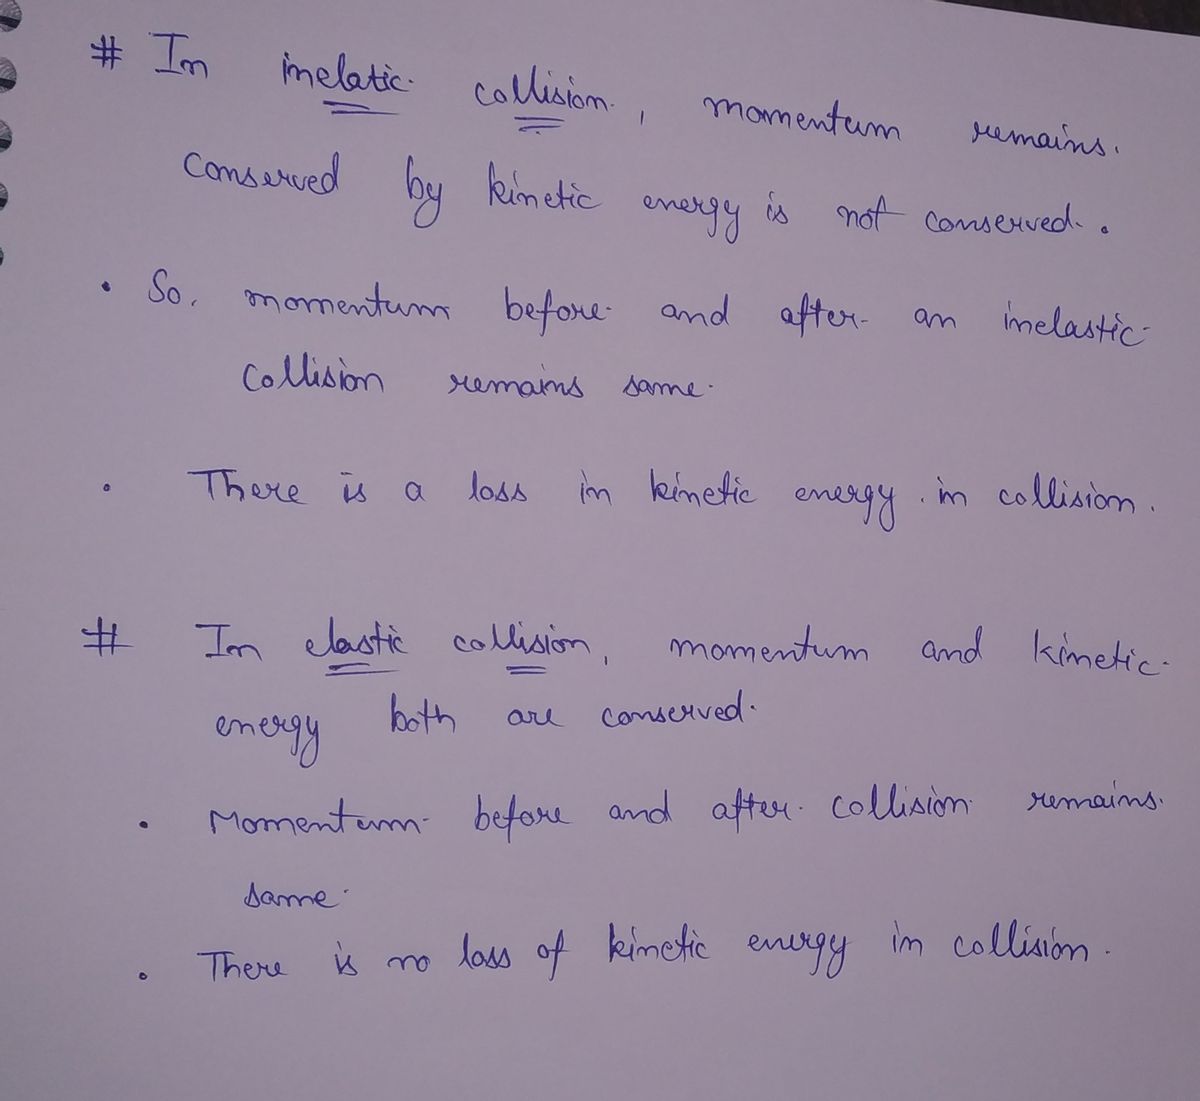 # In inelatic collision, momentum remains.
Conserved by kinetic energy is not conserved.
• So, momentum before and after an inelastic
Collision remains same.
• There is a loss in kinetic energy in collision.
# In elastic collision, momentum and kinetic
energy both are conserved.
• Momentum before and after collision remains.
same.
• There is no loss of kinetic energy in collision.